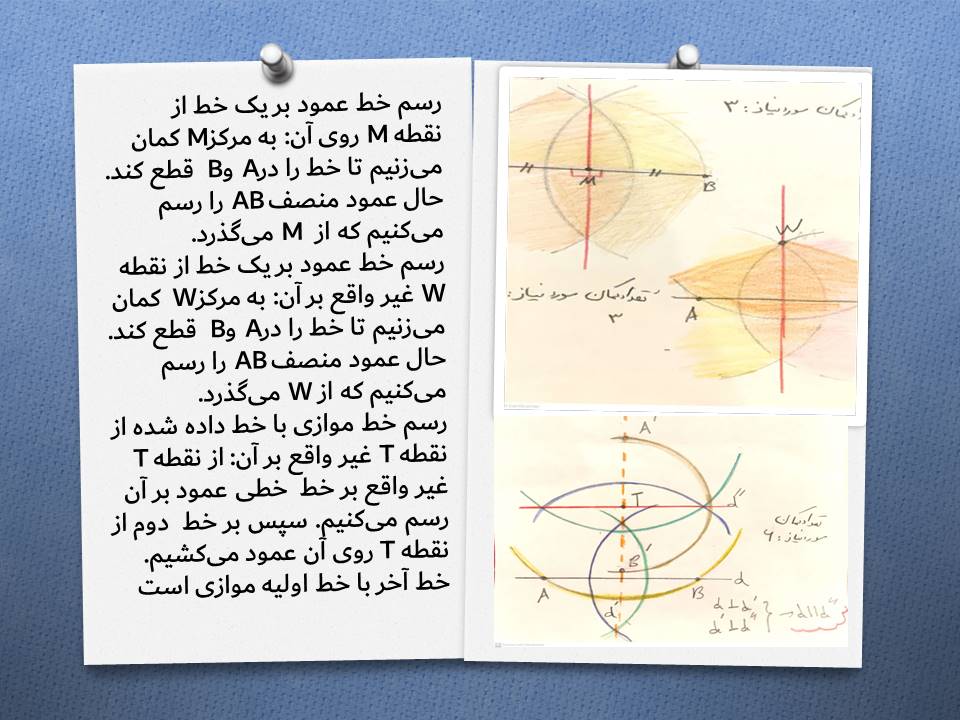 رسم خط عمود بر یک خط از
نقطه M روی آن: به مرکزM کمان
می‌زنیم تا خط را درA وB قطع کند.
حال عمود منصف AB را رسم
می‌کنیم که از M می‌گذرد.
رسم خط عمود بر یک خط از نقطه
W غیر واقع بر آن: به مرکزW کمان
می‌زنیم تا خط را درA وB قطع کند.
حال عمود منصف AB را رسم
می‌کنیم که از W می‌گذرد.
رسم خط موازی با خط داده شده از
نقطه T غیر واقع بر آن: از نقطه T
غیر واقع بر خط خطی عمود بر آن
رسم می‌کنیم. سپس بر خط دوم از
نقطه T روی آن عمود می‌کشیم.
خط آخر با خط اولیه موازی است
کمان مورد نیاز: ۳
M
B
W
A
تعداد کمان مورد نیاز:
۳
A'
T
d"
تعداد کمان
مورد نیاز: ۶
B'
d
A
B
d'
d⊥d'
d'⊥d"
} → d||d"